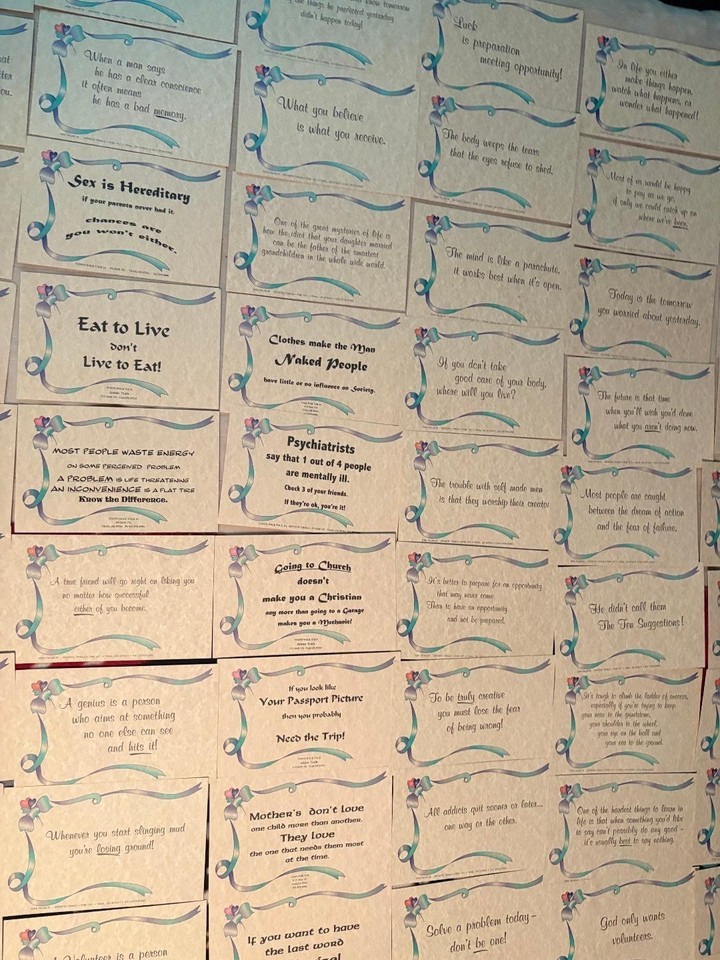 When a man says
he has a clear conscience
it often means
he has a bad memory.
Sex is Hereditary
if your parents never had it,
chances are
you won't either.
Eat to Live
don't
Live to Eat!
MOST PEOPLE WASTE ENERGY
ON SOME PERCEIVED PROBLEM
A PROBLEM IS LIFE THREATENING
AN INCONVENIENCE IS A FLAT TIRE
Know the Difference.
A true friend will go right on liking you
no matter how successful
either of you become.
A genius is a person
who aims at something
no one else can see
and hits it!
Whenever you start slinging mud
you're losing ground!
A Volunteer is a person
the things he predicted yesterday
didn't happen today!
What you believe
is what you receive.
One of the great mysteries of life is
how the idiot that your daughter married
can be the father of the smartest
grandchildren in the whole wide world.
Clothes make the Man
Naked People
have little or no influence on Society.
Psychiatrists
say that 1 out of 4 people
are mentally ill.
Check 3 of your friends.
If they're ok, you're it!
Going to Church
doesn't
make you a Christian
any more than going to a Garage
makes you a Mechanic!
If you look like
Your Passport Picture
then you probably
Need the Trip!
Mother's don't love
one child more than another.
They love
the one that needs them most
at the time.
If you want to have
the last word
Luck
is preparation
meeting opportunity!
The body weeps the tears
that the eyes refuse to shed.
The mind is like a parachute,
it works best when it's open.
If you don't take
good care of your body,
where will you live?
The trouble with self made men
is that they worship their creator
It's better to prepare for an opportunity
that may never come
Than to have an opportunity
and not be prepared.
To be truly creative
you must lose the fear
of being wrong!
All addicts quit sooner or later...
one way or the other.
Solve a problem today -
don't be one!
In life you either
make things happen,
watch what happens, or
wonder what happened!
Most of us would be happy
to pay as we go,
if only we could catch up on
where we've been.
Today is the tomorrow
you worried about yesterday.
The future is that time
when you'll wish you'd done
what you aren't doing now.
Most people are caught
between the dream of action
and the fear of failure.
He didn't call them
The Ten Suggestions!
It's tough to climb the ladder of success,
especially if you're trying to keep
your nose to the grindstone,
your shoulder to the wheel,
your eye on the ball and
your ear to the ground.
One of the hardest things to learn in
life is that when something you'd like
to say can't possibly do any good -
it's usually best to say nothing.
God only wants
volunteers.